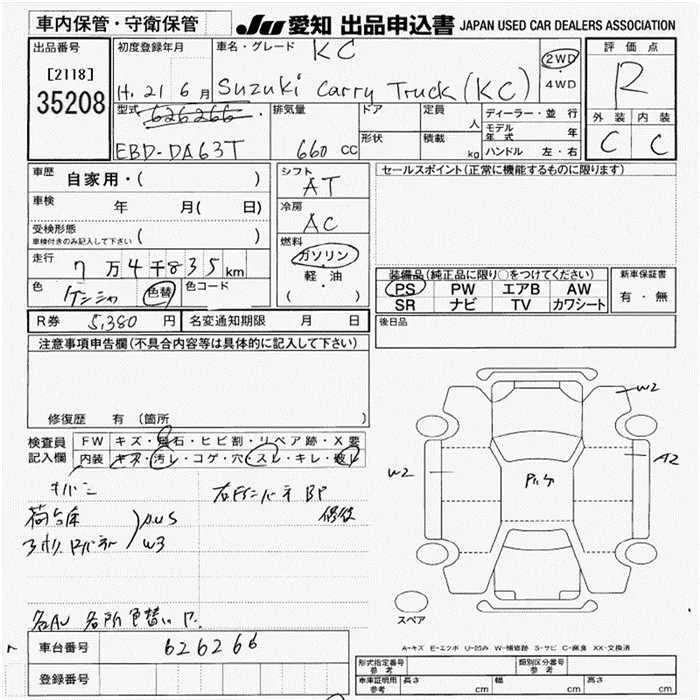 車内保管・守衛保管 JU 愛知 出品申込書 JAPAN USED CAR DEALERS ASSOCIATION
出品番号 初度登録年月 車名・グレード KC 2WD・4WD 評価点
[2118] H. 21 6月 Suzuki Carry Truck (KC) R
35208
型式 626266 排気量 ドア 定員 人 ディーラー・並行 外装 内装
形状 積載 kg モデル年式 年
EBD-DA63T 660 cc ハンドル 左・右 C C
車歴 自家用・( ) シフト AT セールスポイント(正常に機能するものに限ります)
車検 年 月( 日) 冷房 AC
受検形態
車検付きのみ記入して下さい ( ) 燃料
ガソリン
走行 7万4千835km 軽・油 装備品(純正品に限り○をつけてください) 新車保証書
色 色替 色コード ( ) PS PW エアB AW 有・無
SR ナビ TV カワシート
R券 5,380円 名変通知期限 月 日 後日品
注意事項申告欄(不具合内容等は具体的に記入して下さい)
修復歴 有(箇所 )
検査員 FW キズ・飛石・ヒビ割・リペア跡・X要
記入欄 内装 キズ・汚レ・コゲ・穴・スレ・キレ・破レ
W2
W2 A2
荷台
W3
スペア
A=キズ E=エクボ U=凹み W=補修跡 S=サビ C=腐食 XX=交換済
車台番号 626266
登録番号
形式指定番号 参考 類別区分番号 参考
車庫証明用 参考 長さ cm 幅 cm 高さ cm